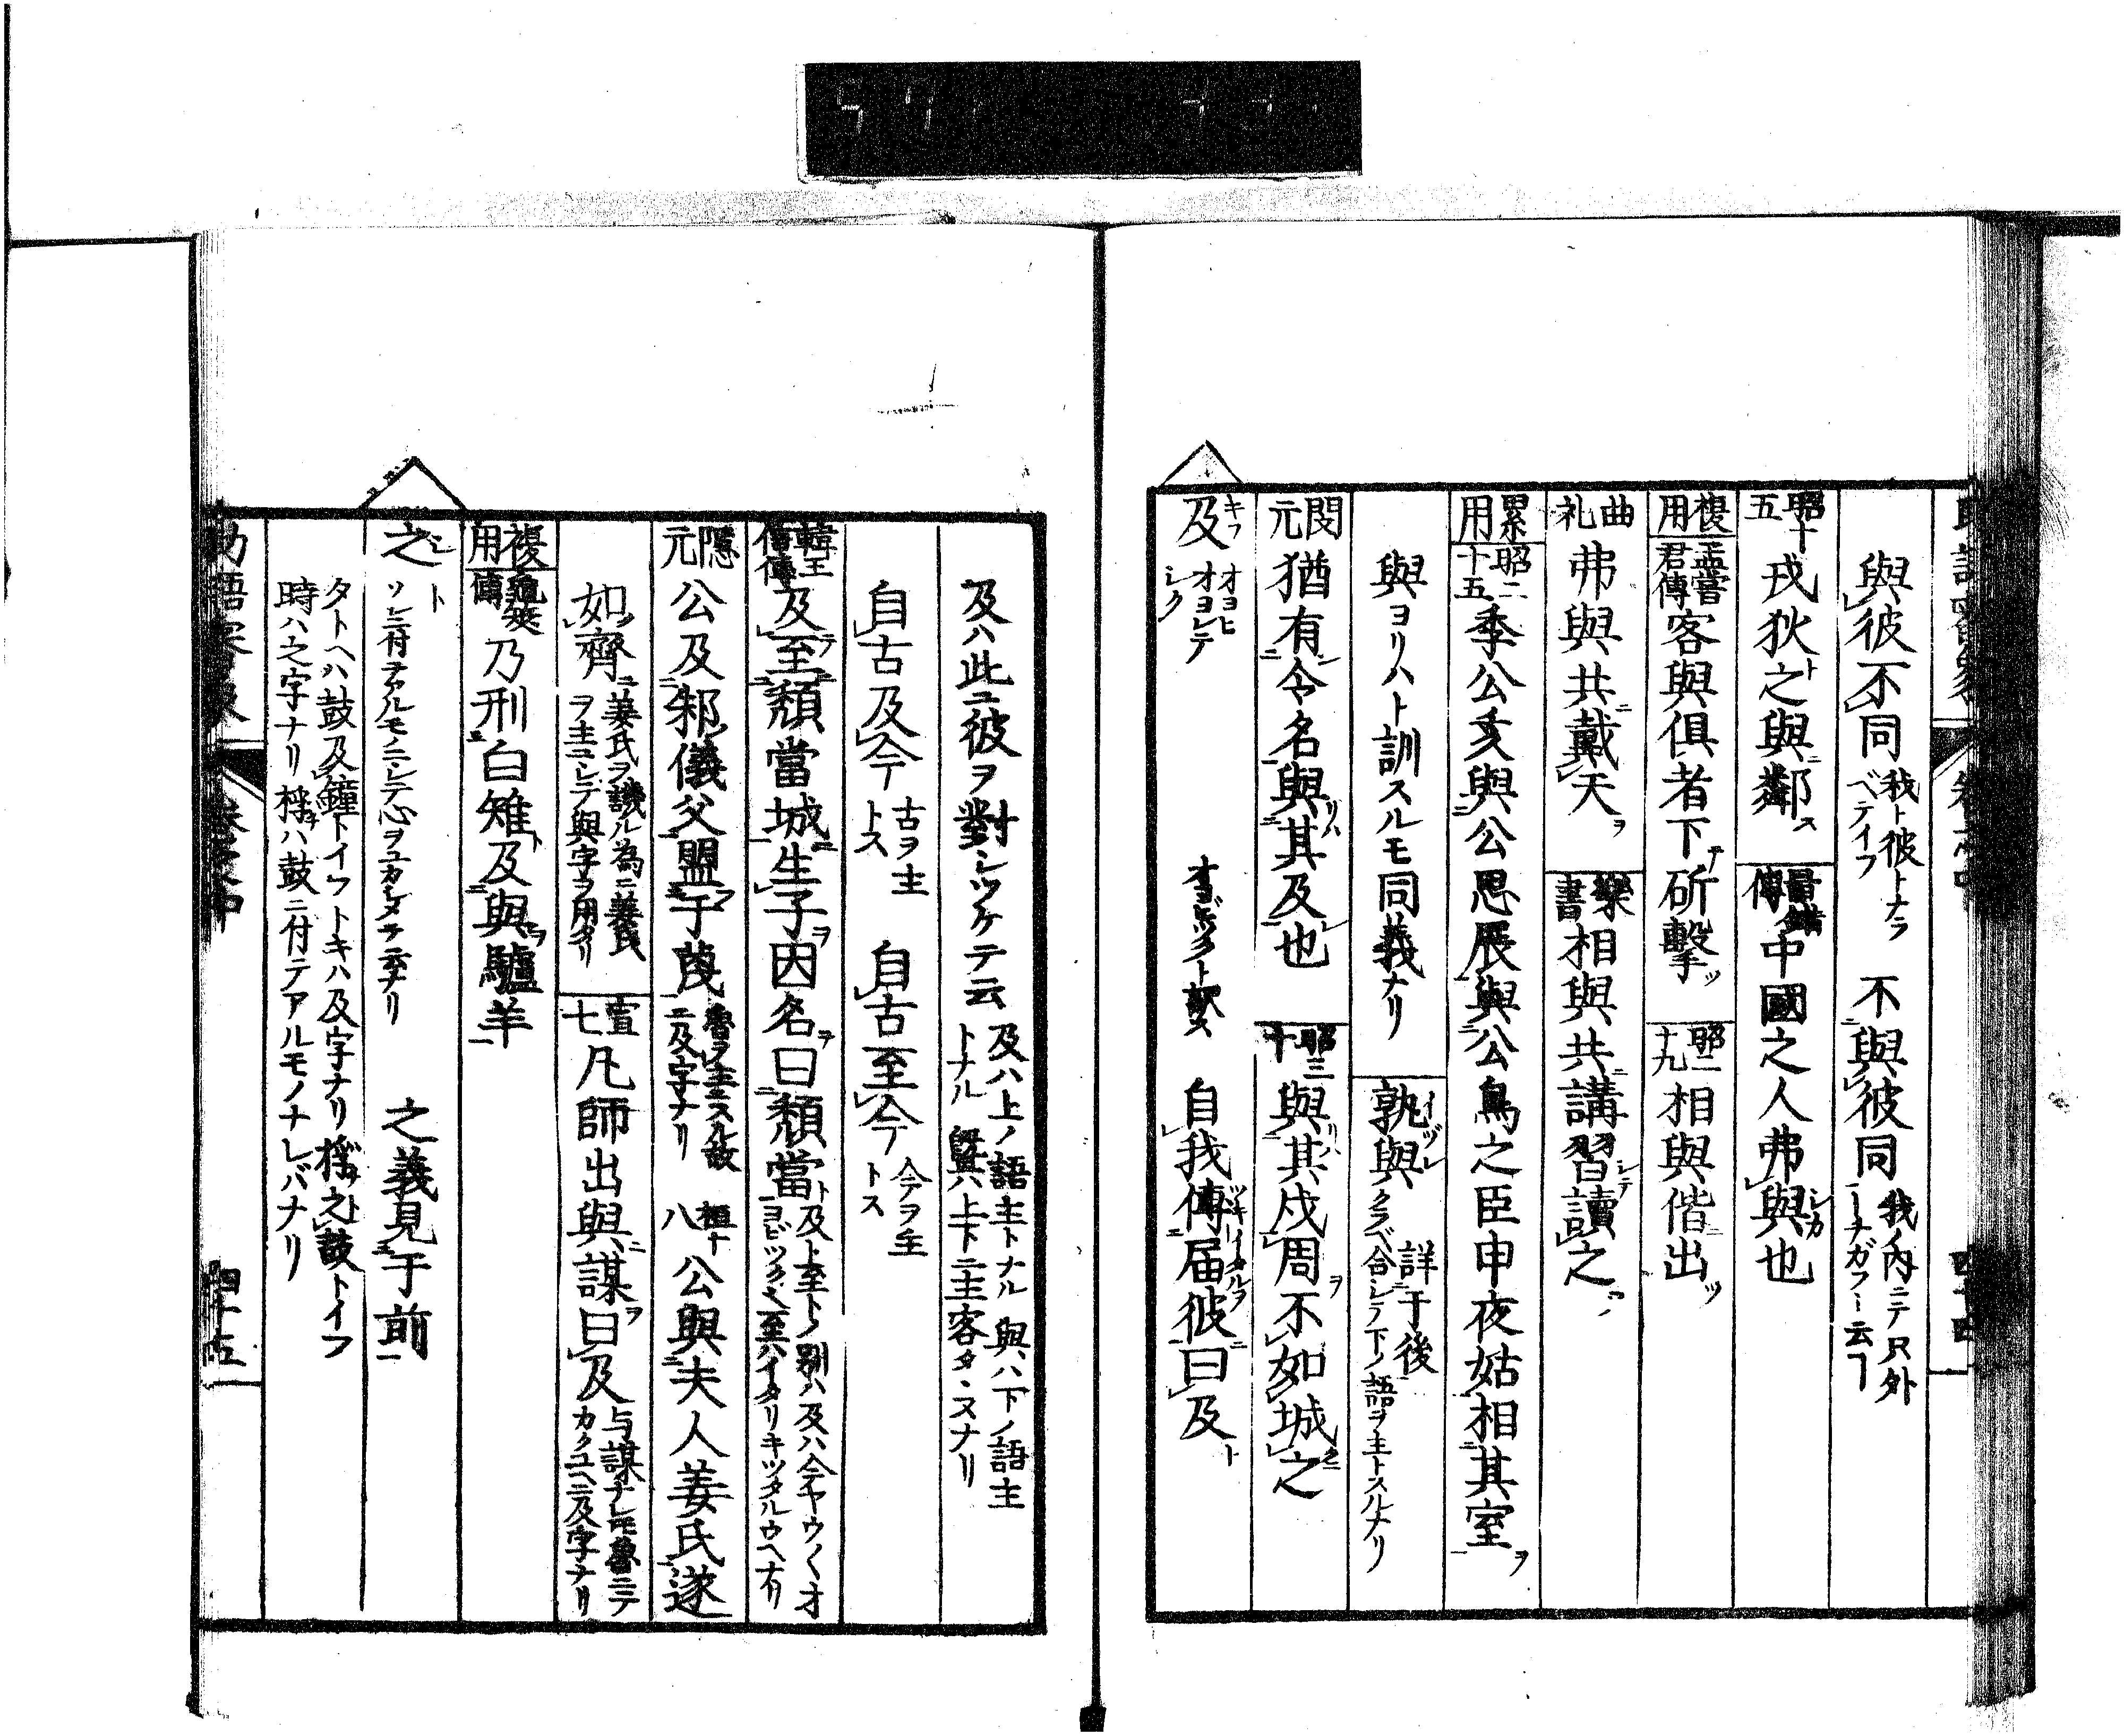 與彼不同 我ト彼トナラベテイフ 不與彼同 我ノ內ニテ只外一ナガフ一云フ
昭十五 戎狄之與鄰 鼂錯傳 中國之人弗與也
複用 孟嘗君傳 客與俱者下斫擊 昭二十九 相與偕出
曲礼 弗與共戴天 樂書 相與共講習讀之
累用 昭二十五 季公亥與公思展與公鳥之臣申夜姑相其室
與ヨリハト訓スルモ同義ナリ 孰與 クラベ合シテ下ノ語ヲ主トスルナリ 詳于後
閔元 猶有令名與其及也 昭三十 與其戍周不如城之
及 キフ オヨヒ オヨンテ シク オヨビツクト訳ス 自我傳届彼曰及
及ハ此ニ彼ヲ對シツケテ云 及ハ上ノ語主トナル與ハ下ノ語主トナル 暨ハ上下ニ主客タヽヌナリ
自古及今 古ヲ主トス 自古至今 今ヲ主トス
韓王信傳 及至頹當城生子因名曰頹當 及ト至トノ別ハ及ハ今ヤウ〳〵オヨビツク也至ハイタリキツタルウヘナリ
隱元 公及邾儀父盟于蔑 魯ヲ主トスル故ニ及字ナリ 桓十八 公與夫人姜氏遂
如齊 姜氏ヲ譏ル為ニ姜氏ヲ主ニシテ與字ヲ用タリ 宣七 凡師出與謀曰及 与謀ナレモ魯ニテカクユヘニ及字ナリ
複用 龜筴傳 乃刑白雉及與驪羊
之 シ ト ソレニ付テアルモノニシテ心ヲユカシメテ云ナリ 之義見于前
タトヘハ鼓及鐘トイフトキハ及字ナリ 桴之鼓トイフ
時ハ之字ナリ桴ハ鼓ニ付テアルモノナレバナリ
助語審象 卷之中 四十五